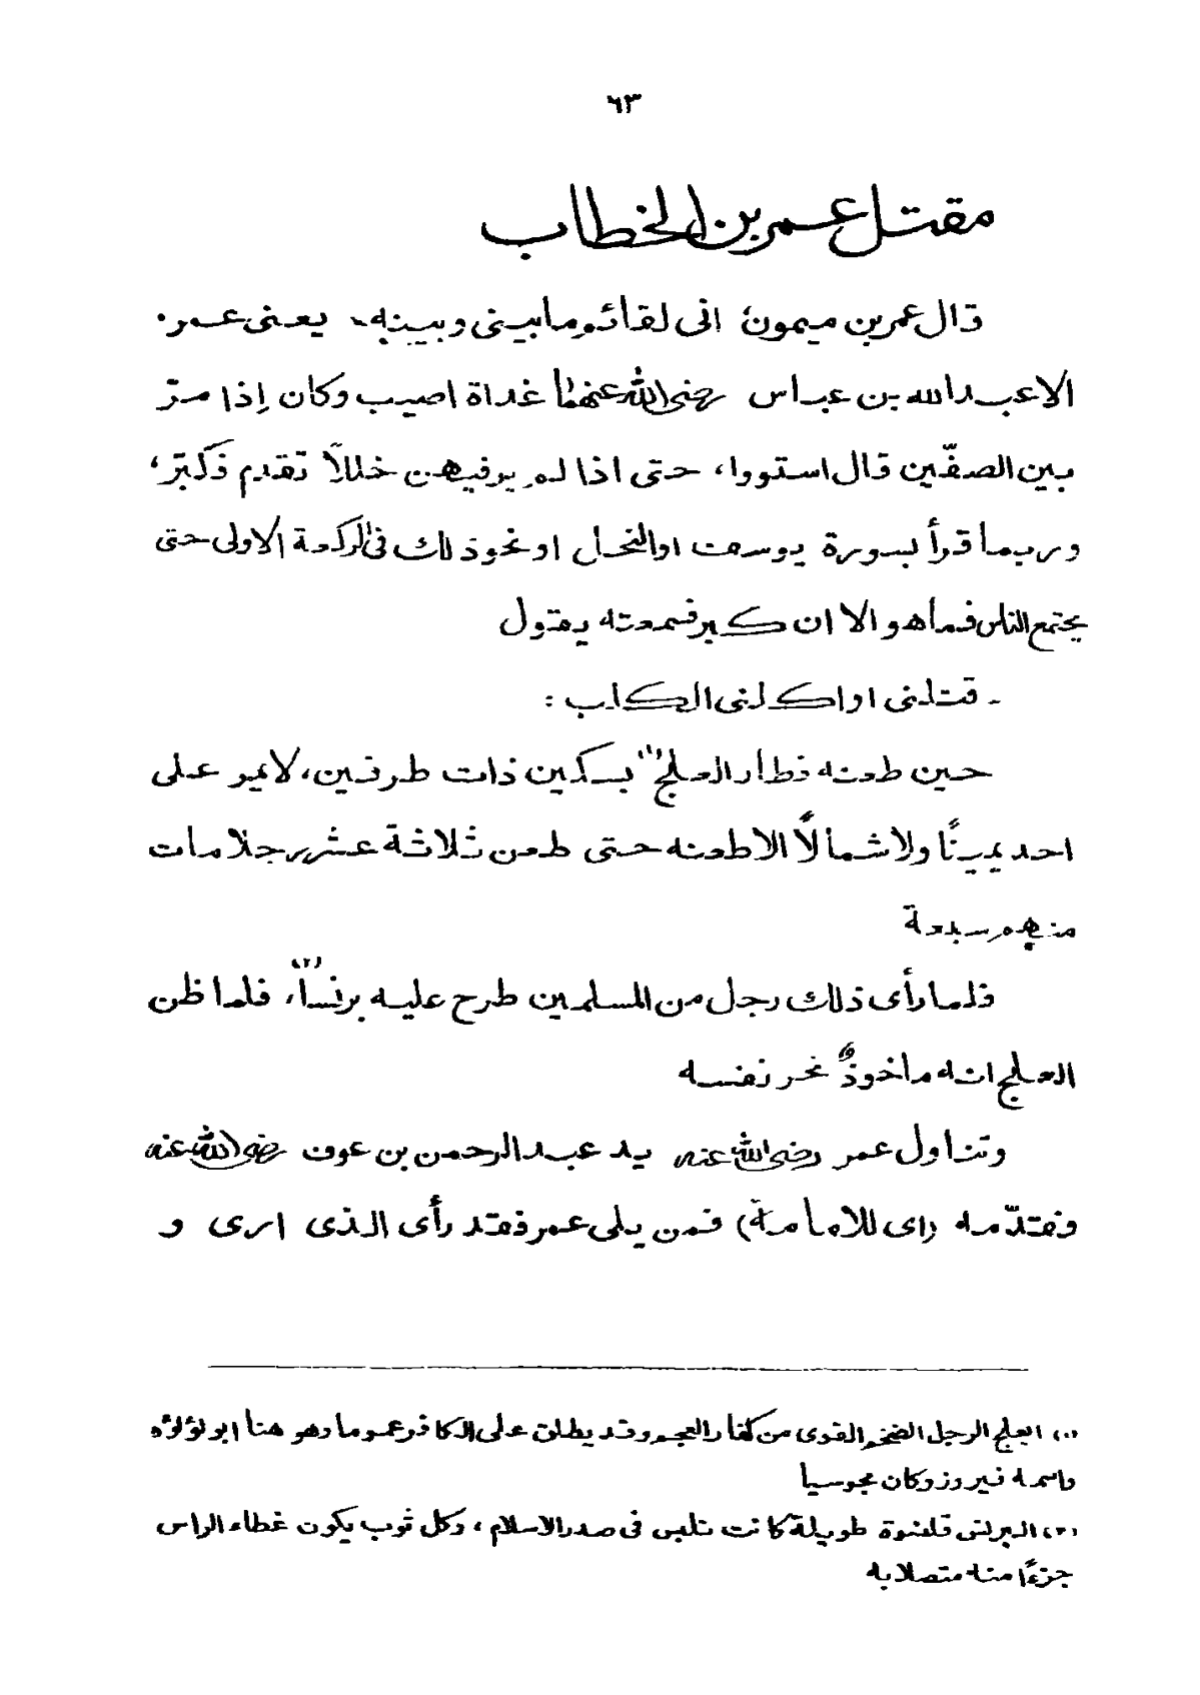 ٦٣
مقتل عمر بن الخطاب
قال عمر بن ميمون؛ انى لقائم ما بينى وبينه - يعنى عمر.
الا عبد الله بن عباس رضى الله عنهما غداة اصيب وكان إذا مرّ
بين الصفّين قال استووا، حتى اذا لم ير فيهن خللاً تقدم فكبّر،
وربما قرأ بسورة يوسف او النحل او نحو ذلك فى الركعة الاولى حتى
يجتمع الناس فما هو الا ان كبر فسمعته يقول
- قتلنى او اكلنى الكلب :
حين طعنه فطار العلج (١) بسكين ذات طرفين، لا يمر على
احد يمينًا ولا شمالًا الا طعنه حتى طعن ثلاثة عشر رجلا مات
منهم سبعة
فلما رأى ذلك رجل من المسلمين طرح عليه برنساً (٢)، فلما ظن
العلج انه مأخوذٌ نحر نفسه
وتناول عمر رضى الله عنه يد عبد الرحمن بن عوف رضى الله عنه
فقدّمه (اى للامامة) فمن يلى عمر فقد رأى الذى ارى و
(١) العلج الرجل الضخم القوى من كفار العجم وقد يطلق على الكافر عموما وهو هنا ابو لؤلؤه
واسمه فيروز وكان مجوسيا
(٢) البرنس قلنسوة طويلة كانت تلبس فى صدر الاسلام، وكل ثوب يكون غطاء الراس
جزءًا منه متصلا به